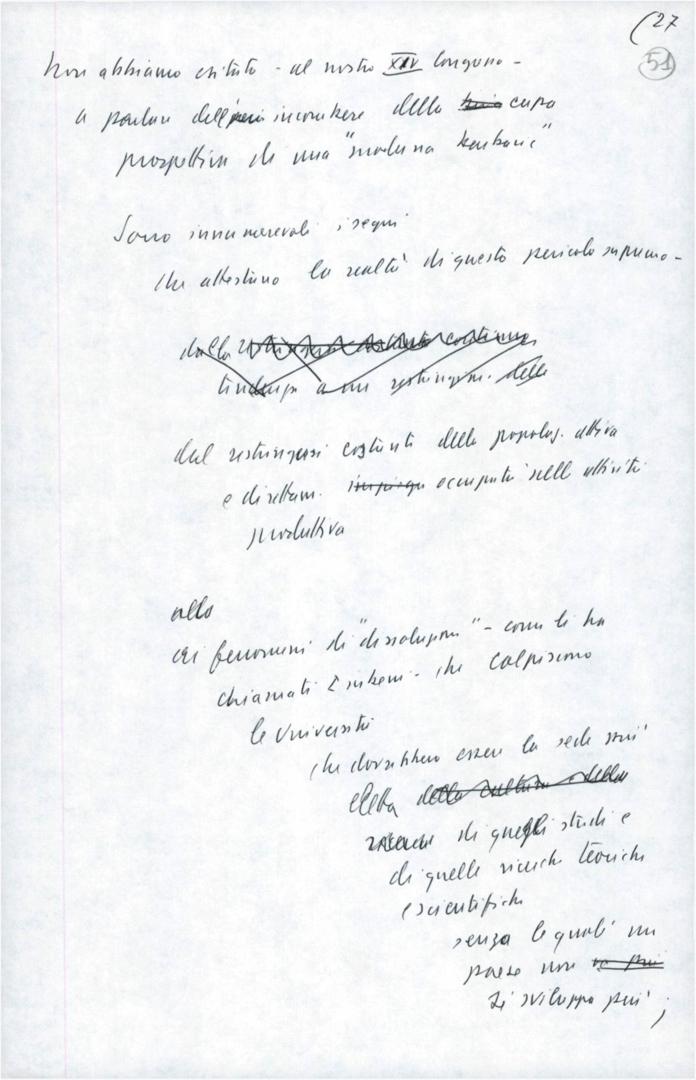 (27
51
Non abbiamo esitato - al nostro XIV Congresso -
a parlare dell' incombere della cupa
prospettiva di una "moderna barbarie"
Sono innumerevoli i segni
che attestano la realtà di questo pericolo supremo -
dalla
tendenza a un restringim. della
dal restringersi costante della popolaz. attiva
e direttam. occupata nell attività
produttiva
allo
ai fenomeni di "dissoluzione" - come li ha
chiamati - che colpiscono
le Università
che dovrebbero essere la sede più
eletta della cultura della
di quegli studi e
di quelle ricerche teoriche
e scientifiche
senza le quali un
paese non va più
si sviluppa più;